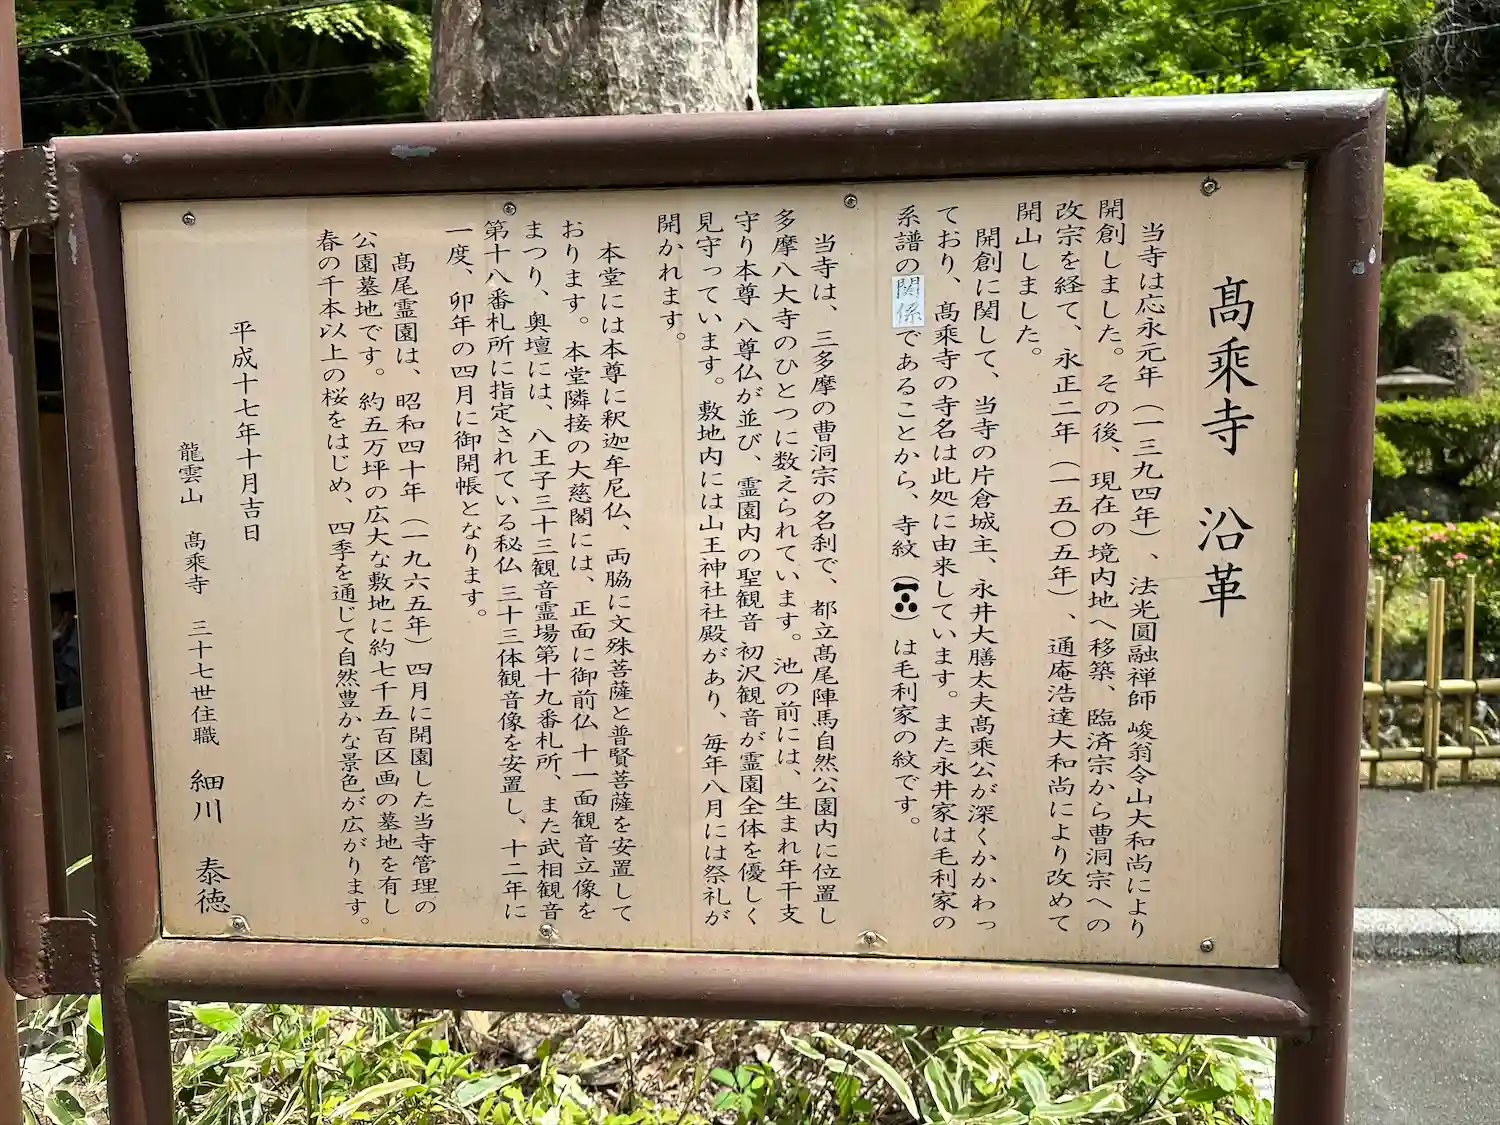 髙乘寺　沿革
当寺は応永元年（一三九四年）、法光圓融禅師 峻翁令山大和尚により
開創しました。その後、現在の境内地へ移築、臨済宗から曹洞宗への
改宗を経て、永正二年（一五〇五年）、通庵浩達大和尚により改めて
開山しました。
開創に関して、当寺の片倉城主、永井大膳太夫髙乘公が深くかかわっ
ており、髙乘寺の寺名は此処に由来しています。また永井家は毛利家の
系譜の関係であることから、寺紋（）は毛利家の紋です。
当寺は、三多摩の曹洞宗の名刹で、都立髙尾陣馬自然公園内に位置し
多摩八大寺のひとつに数えられています。池の前には、生まれ年干支
守り本尊 八尊仏が並び、霊園内の聖観音 初沢観音が霊園全体を優しく
見守っています。敷地内には山王神社社殿があり、毎年八月には祭礼が
開かれます。
本堂には本尊に釈迦牟尼仏、両脇に文殊菩薩と普賢菩薩を安置して
おります。本堂隣接の大慈閣には、正面に御前仏 十一面観音立像を
まつり、奥壇には、八王子三十三観音霊場第十九番札所、また武相観音
第十八番札所に指定されている秘仏 三十三体観音像を安置し、十二年に
一度、卯年の四月に御開帳となります。
髙尾霊園は、昭和四十年（一九六五年）四月に開園した当寺管理の
公園墓地です。約五万坪の広大な敷地に約七千五百区画の墓地を有し
春の千本以上の桜をはじめ、四季を通じて自然豊かな景色が広がります。
平成十七年十月吉日
龍雲山　髙乘寺　三十七世住職　細川　泰徳